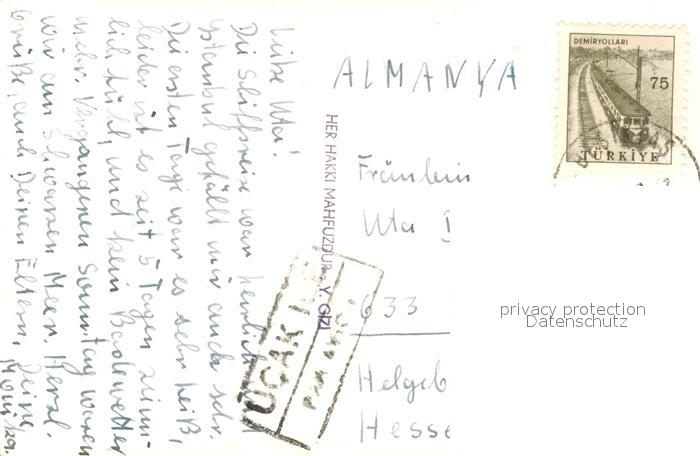 Liebe Uta!
Die Schiffsreise war herrlich und
Istanbul gefällt mir auch sehr.
Die ersten Tage war es sehr heiß,
leider ist es seit 5 Tagen ziem-
lich kühl und kein Badewetter
mehr. Vergangenen Sonntag waren
wir am Schwarzen Meer. Herzl.
Grüße, auch Deinen Eltern, Deine
HER HAKKI MAHFUZDUR Y. GİZİ
ALMANYA
DEMİRYOLLARI
75
TÜRKİYE
Fräulein
Uta
UÇAK İLE
PAR AVION
633
Helgeb
Hesse
privacy protection
Datenschutz